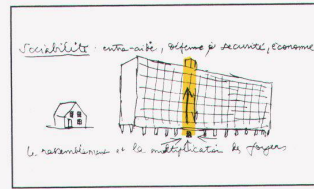 Sociabilité - entre-aide, défense & sécurité, économie
le rassemblement et la multiplication de foyers